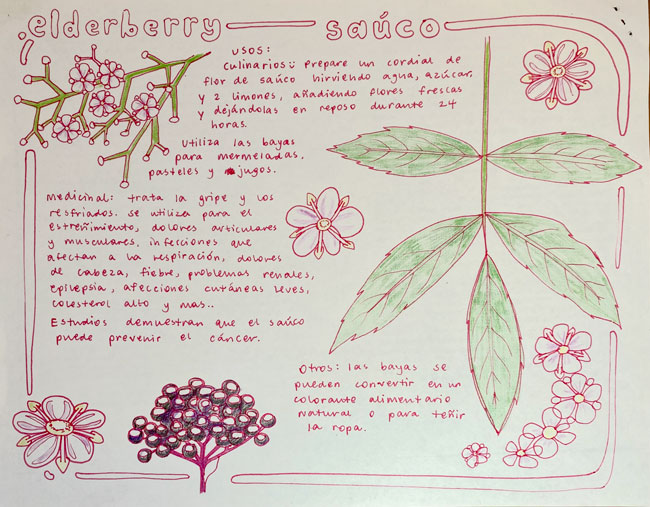 elderberry saúco
usos:
Culinarios: prepare un cordial de
flor de saúco hirviendo agua, azúcar,
y 2 limones, añadiendo flores frescas
y dejándolas en reposo durante 24
horas.
Utiliza las bayas
para mermeladas,
pasteles y jugos.
Medicinal: trata la gripe y los
resfriados. se utiliza para el
estreñimiento, dolores articulares
y musculares, infecciones que
afectan a la respiración, dolores
de cabeza, fiebre, problemas renales,
epilepsia, afecciones cutáneas leves,
colesterol alto y mas..
Estudios demuestran que el saúco
puede prevenir el cáncer.
Otros: las bayas se
pueden convertir en un
colorante alimentario
natural o para teñir
la ropa.